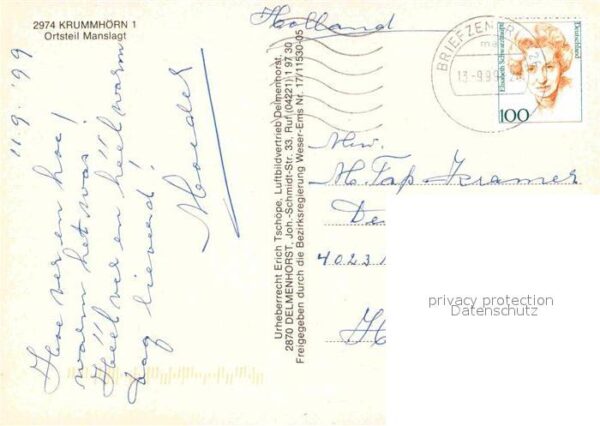 2974 KRUMMHÖRN 1
Ortsteil Manslagt
11 9 '99
Hoe ver en hoe
warm het was!
Héél ver en héél warm
dag lieverd!
Moeder
Urheberrecht Erich Tschöpe, Luftbildvertrieb Delmenhorst,
2870 DELMENHORST, Joh.-Schmidt-Str. 33, Ruf (04221) 1 97 30
Freigegeben durch die Bezirksregierung Weser-Ems Nr. 17/11530-05
Holland
BRIEFZENTRUM
13.-9.99
Elisabeth Schwarzhaupt
Deutschland
100
Mw.
M. Tap Kramer
De
4023
H
privacy protection
Datenschutz